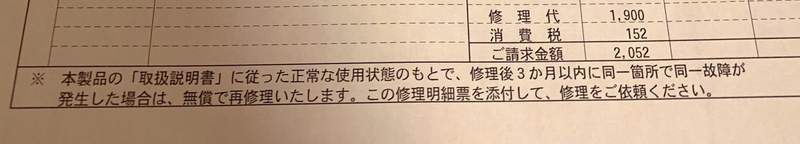 修理代 1,900
消費税 152
ご請求金額 2,052
※ 本製品の「取扱説明書」に従った正常な使用状態のもとで、修理後3か月以内に同一箇所で同一故障が
発生した場合は、無償で再修理いたします。この修理明細票を添付して、修理をご依頼ください。